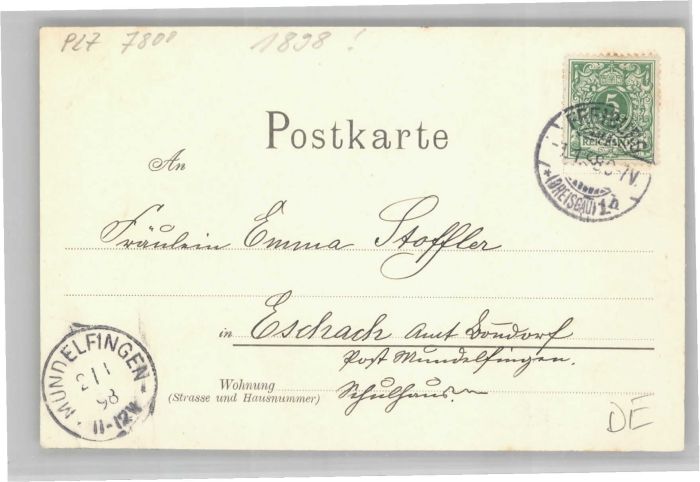 PLZ 7800 1898!
5
FREIBURG
(BREISGAU)
Postkarte
An
Fräulein Emma Stoffler
in Eschach Amt Bondorf
Post Mundelfingen.
Wohnung Schulhaus.
(Strasse und Hausnummer)
MUNDELFINGEN
98
11-12V
DE